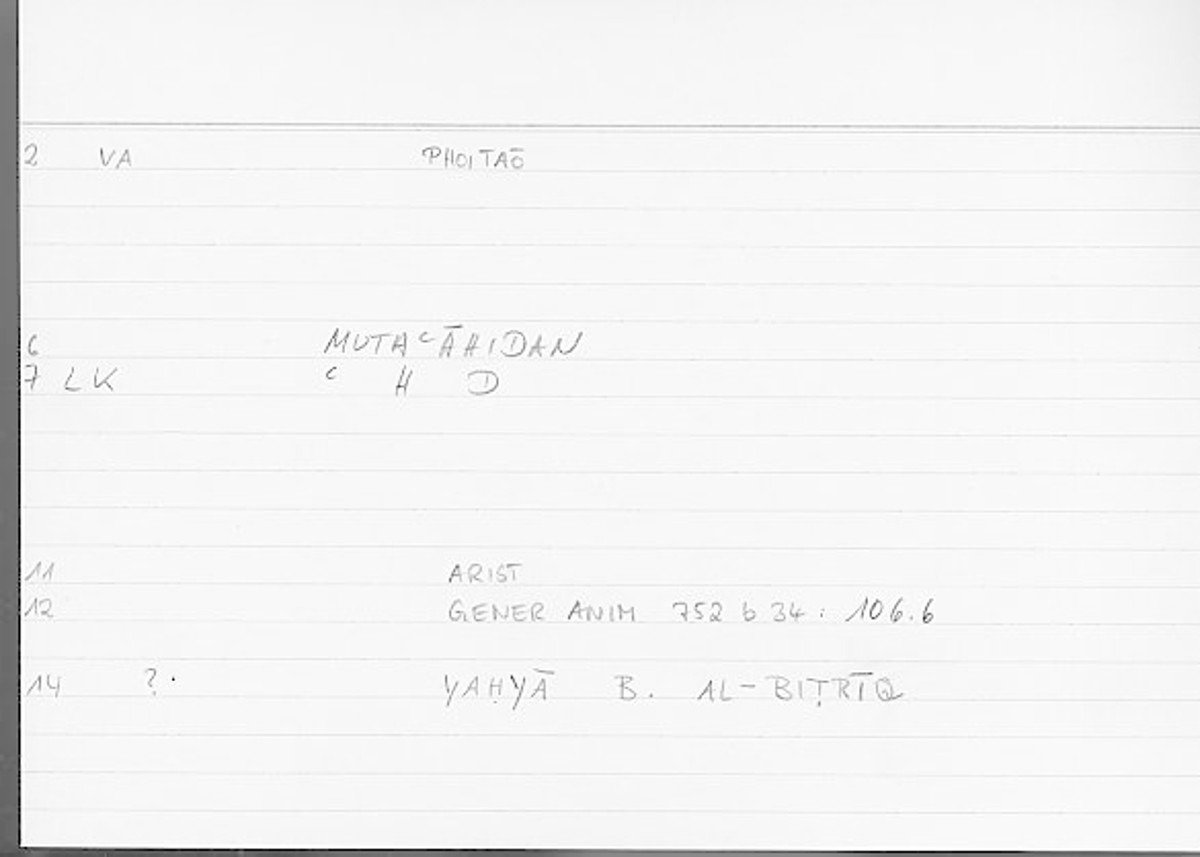 2 VA PHOITAŌ
6 MUTAʿĀHIDAN
7 LK ʿ H D
11 ARIST
12 GENER ANIM 752 b 34 : 106.6
14 ? . YAḤYĀ B. AL-BIṬRĪQ